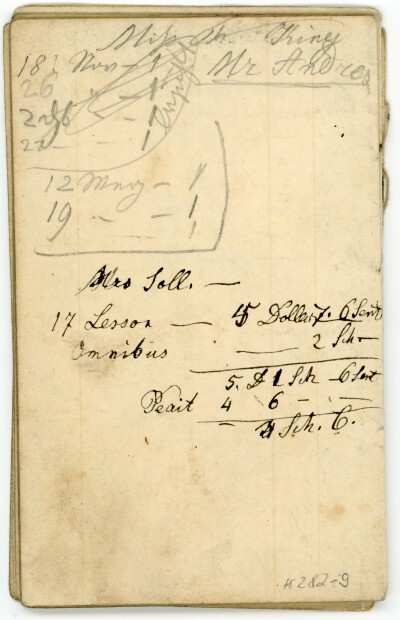 Miss M. King
18 Nov - 1 Mr Andres
26 " - 1
- 1
12 May - 1
19 - - 1
1
Mrs Soll. —
17 Lesson — 5 Dollar 7. 6 Sent
Omnibus — 2 Sch -
5. D 1 Sch - 6 Sent
Peait 4 6 - -
- 4 Sch. 6.
#282-9